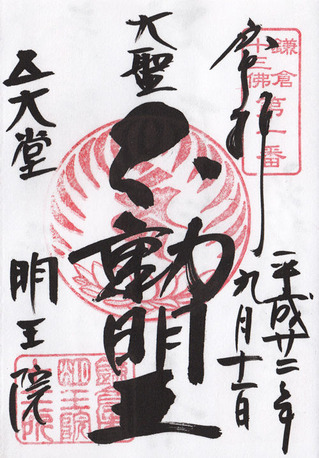 奉拝
鎌倉
十三佛
第一番
平成廿二年
九月十一日
大聖
不動明王
五大堂
明王院